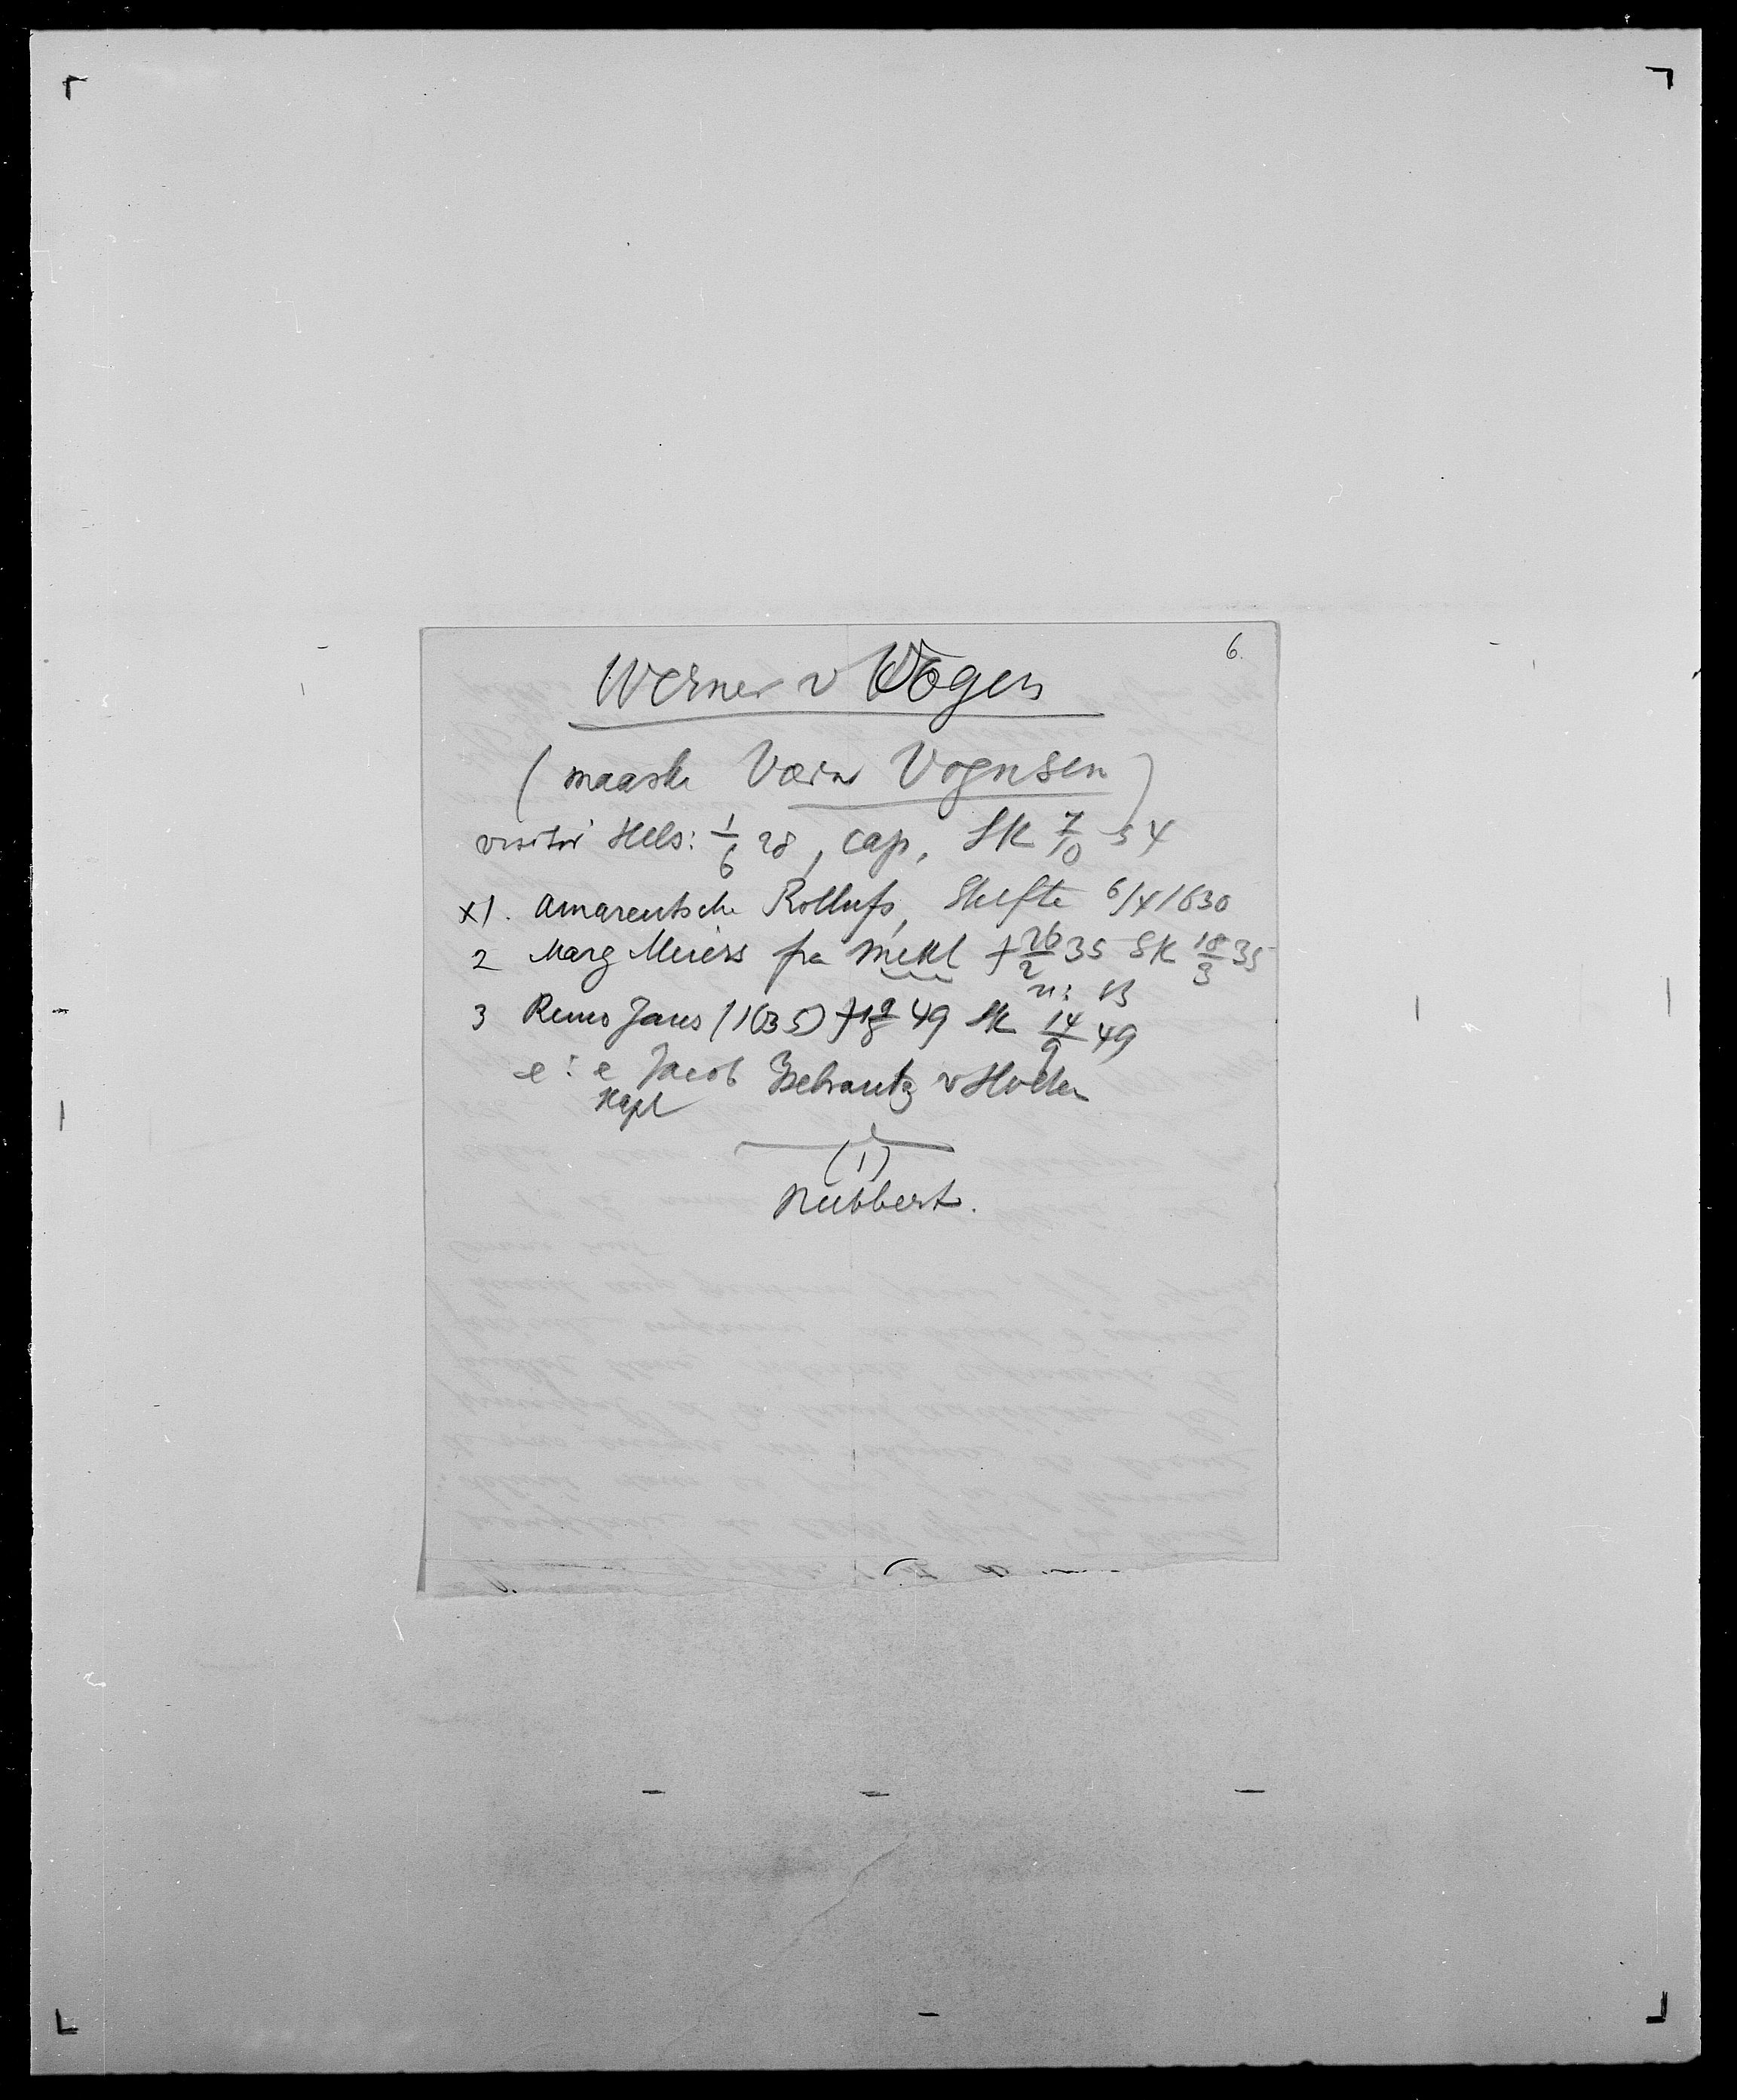 6.
Werner v Wogen
(maaske Værn Vognsen)
visitør Hels: 1/6 28, cap. SK 7/10 54
x1. Amarentsche Rollufs, Skifte 6/4 1630
2 Marg Meiers fra Mekl † 26/2 35 SK 18/3 35
3 Jans (1635) † 49 SK 14/9 49
e: e Jacob v Holten
Kapt
(1)
Nubbert.